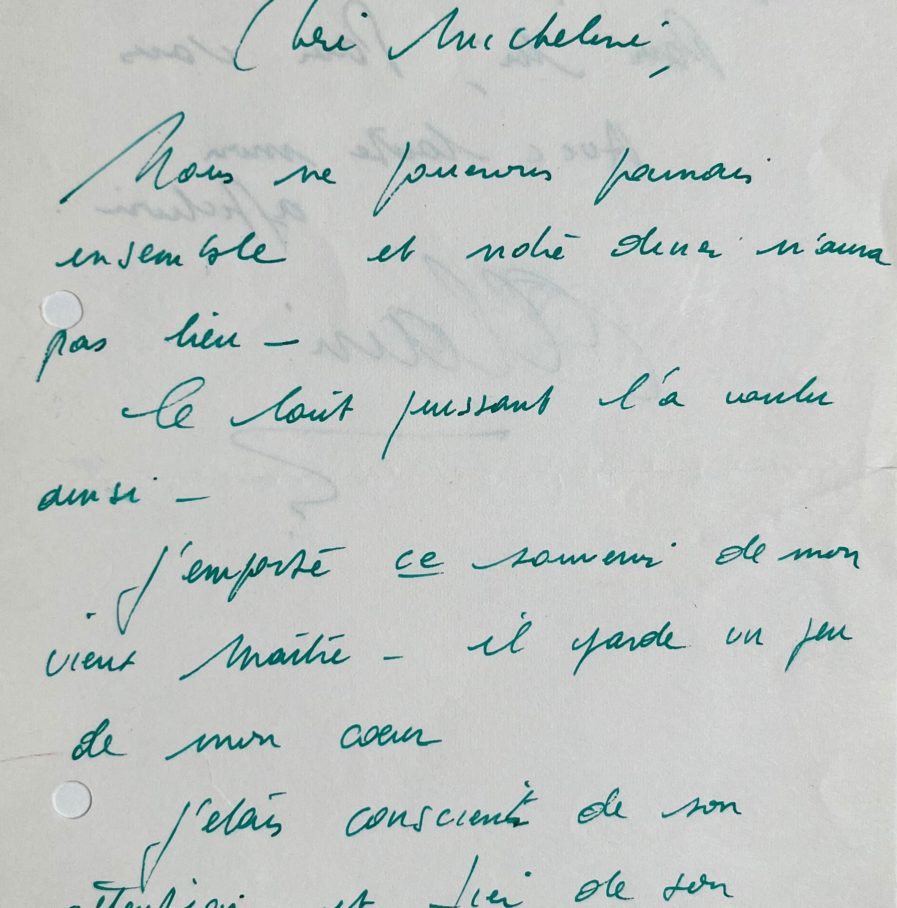 Cher Micheline,
Nous ne jouerons jamais
ensemble et notre diner n'aura
pas lieu –
Le tout puissant l'a voulu
ainsi –
J'emporte ce souvenir de mon
vieux Maître – il garde un peu
de mon coeur
J'etais conscient de son
attention et fier de son